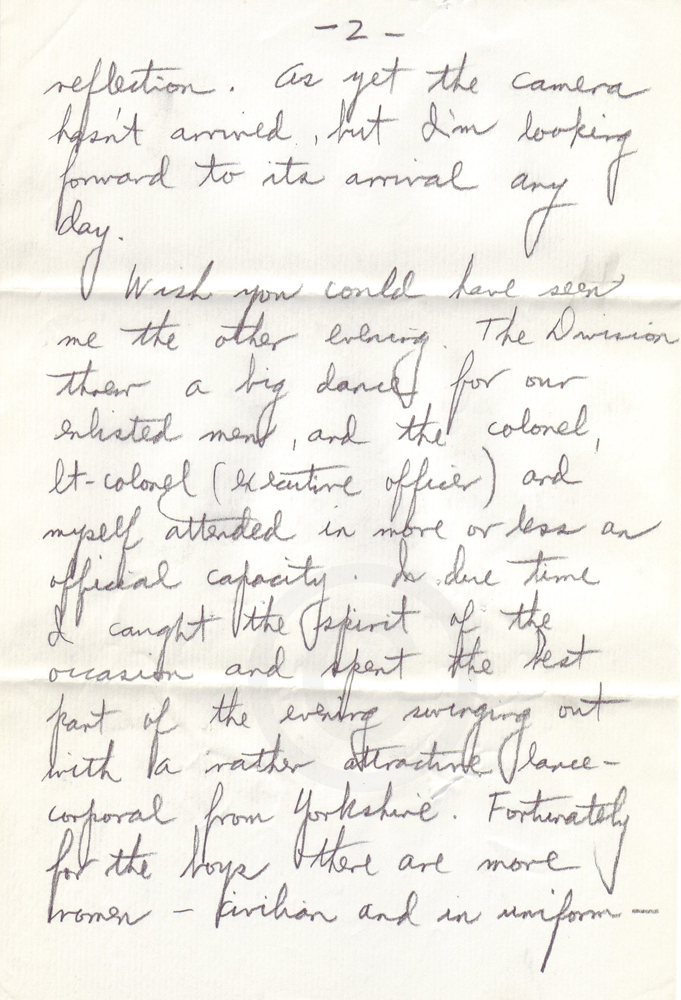 - 2 -
reflection. As yet the camera
hasn't arrived, but I'm looking
forward to its arrival any
day.
Wish you could have seen
me the other evening. The Division
threw a big dance for our
enlisted men, and the colonel,
lt-colonel (executive officer) and
myself attended in more or less an
official capacity. In due time
I caught the spirit of the
occasion and spent the best
part of the evening swinging out
with a rather attractive lance-
corporal from Yorkshire. Fortunately
for the boys there are more
women - civilian and in uniform -